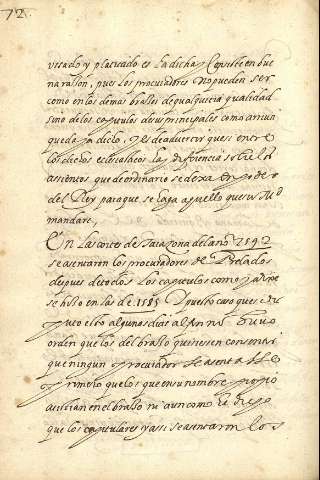 72.
vssado y platicado es la dicha y Consiste en bue
na rason, pues los procuradores no pueden ser
como en los demas brassos de qualquiera qualidad
sino de los capitulos de sus principales como arriua
queda ya dicho, y es de aduertir que si entre
los dichos eclesiasticos hay diferencia sobre los
assientos que de ordinario se dexa en poder
del Rey para que se haga aquello que su Md
mandare,
En las cortes de Taraçona del año 1592
se asentaron los procuradores de Perlados
despues de todos los capitulos como ya
se hiso en las de 1585 Y puesto caso que
tuuo
orden que los del brasso quisiesen consentir
que ningun procurador se asentasse
primero que los que en su nombre propio
asistian en el brasso ni aun como
que los capitulares y assi se asentaron los